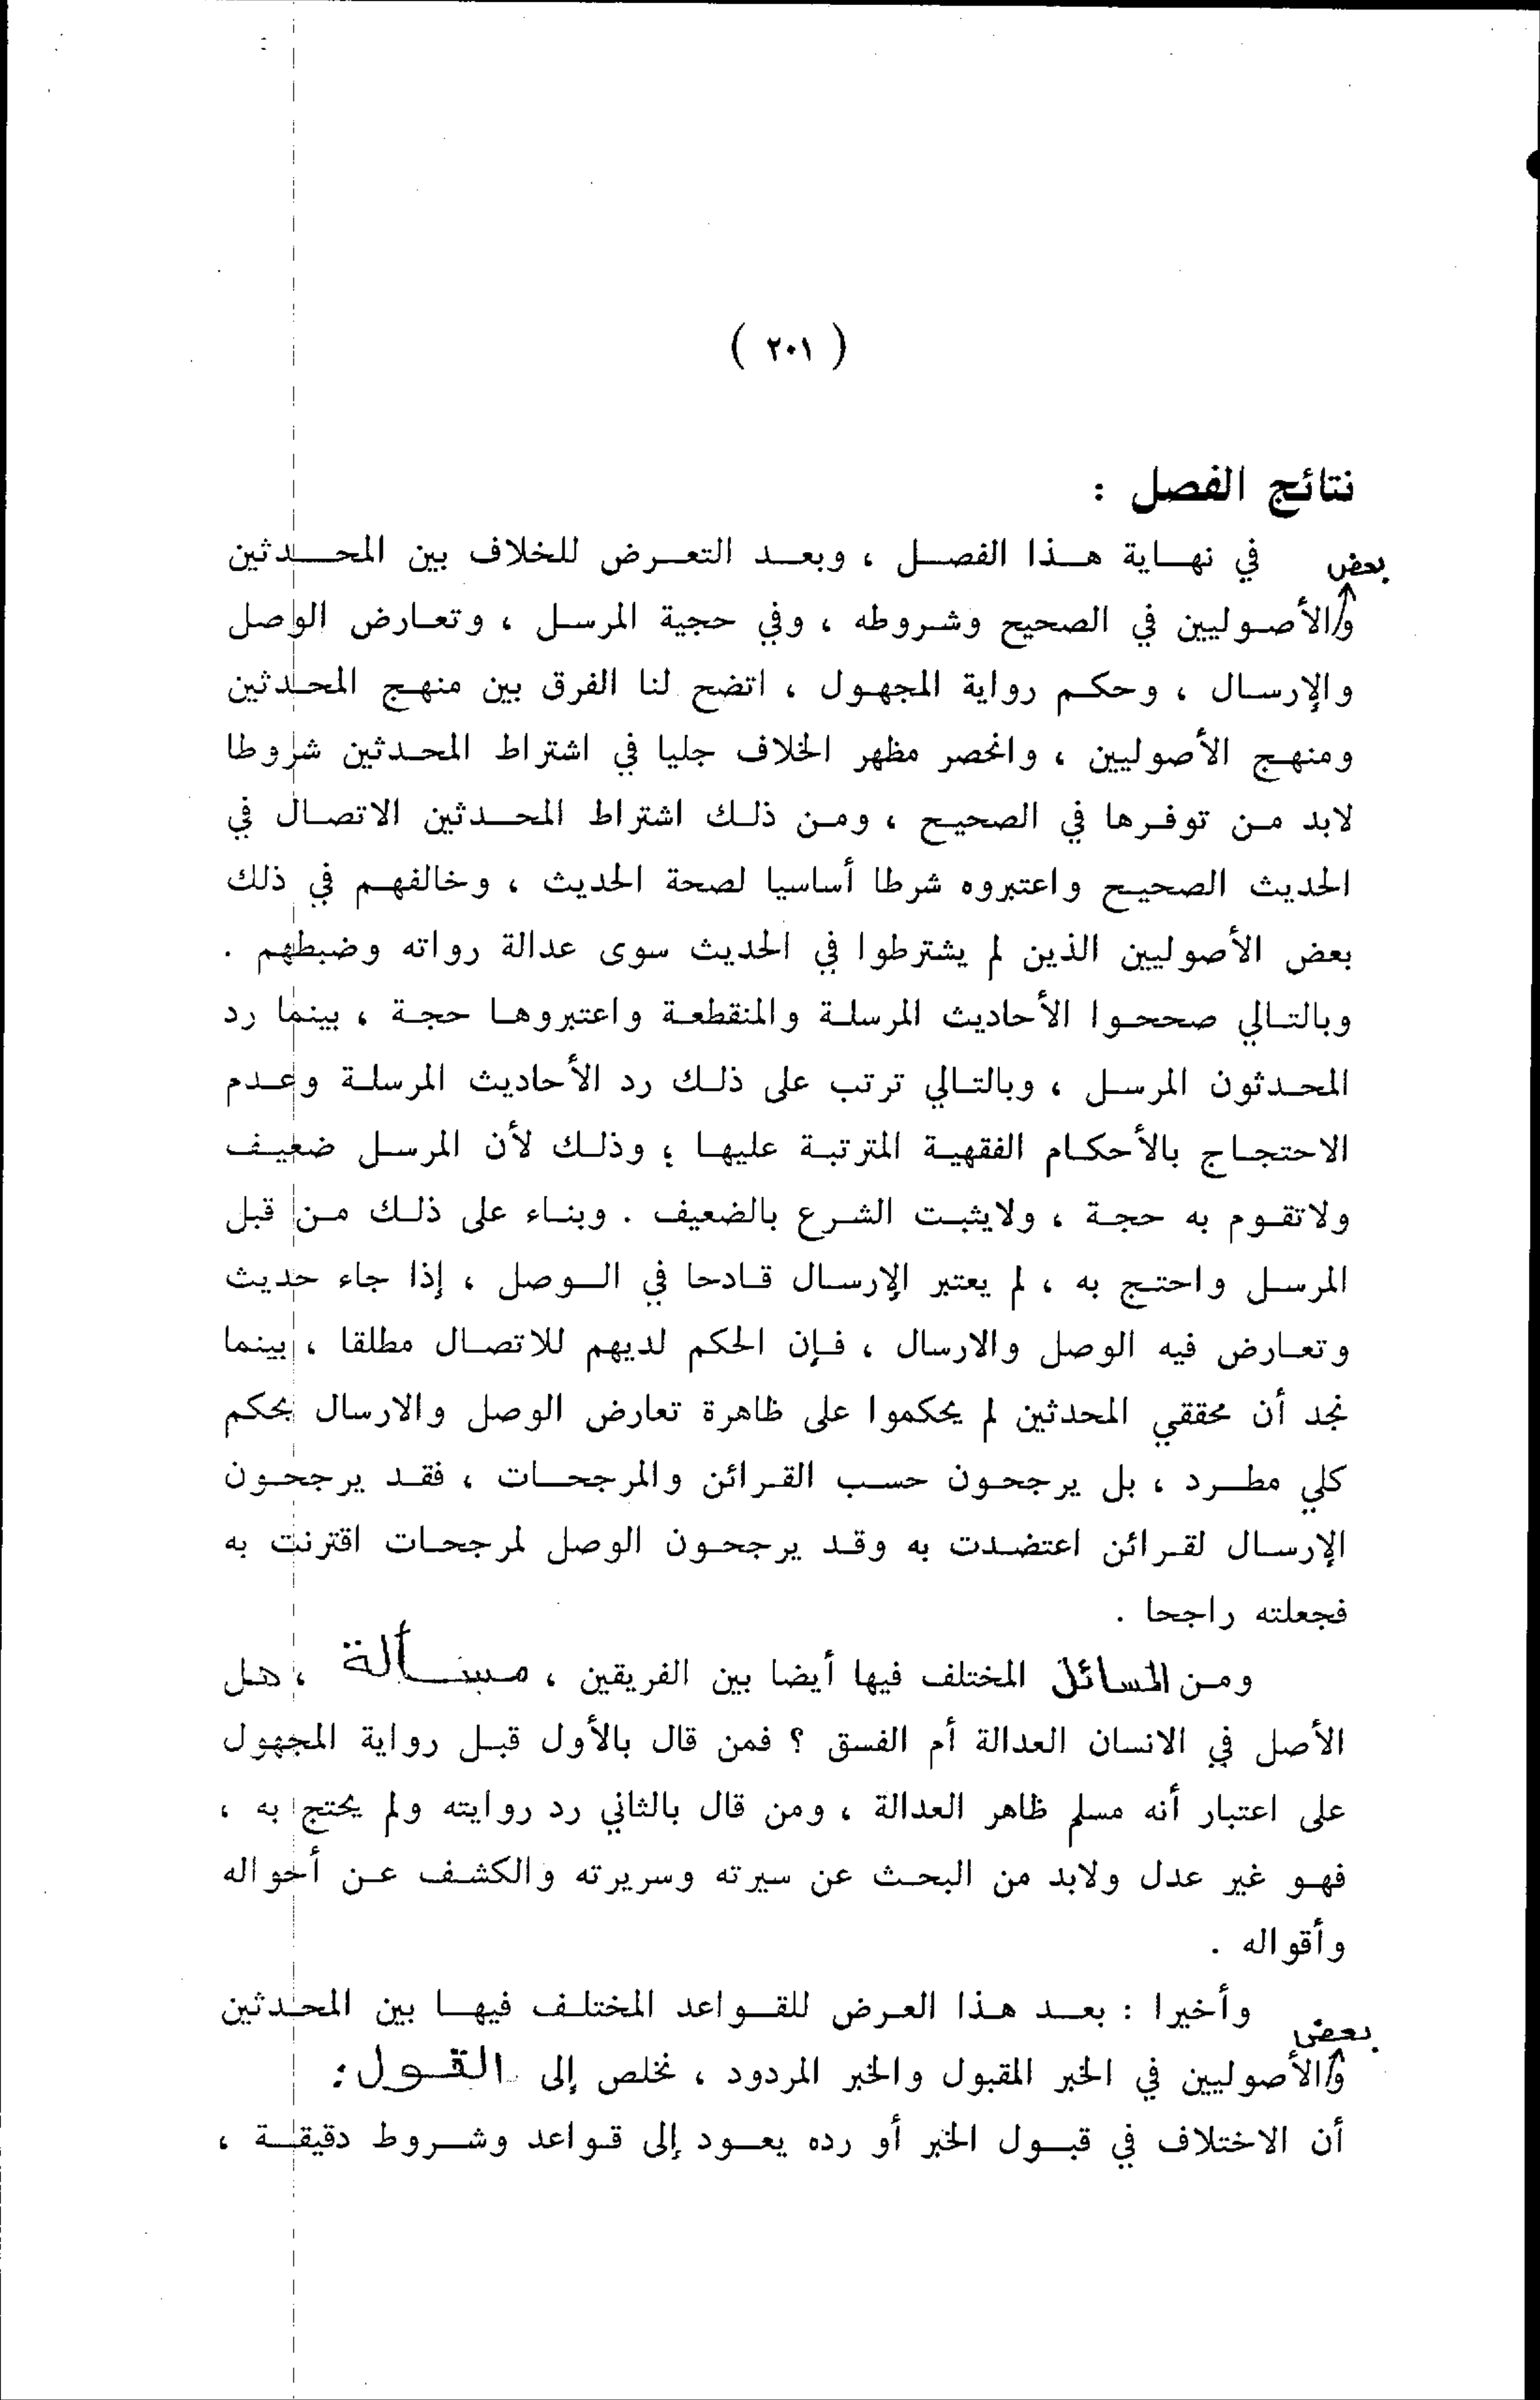 ( ٢٠١ )
نتائج الفصل :
في نهاية هذا الفصل ، وبعد التعرض للخلاف بين المحدثين
بعض
والأصوليين في الصحيح وشروطه ، وفي حجية المرسل ، وتعارض الوصل
والإرسال ، وحكم رواية المجهول ، اتضح لنا الفرق بين منهج المحدثين
ومنهج الأصوليين ، وانحصر مظهر الخلاف جليا في اشتراط المحدثين شروطا
لابد من توفرها في الصحيح ، ومن ذلك اشتراط المحدثين الاتصال في
الحديث الصحيح واعتبروه شرطا أساسيا لصحة الحديث ، وخالفهم في ذلك
بعض الأصوليين الذين لم يشترطوا في الحديث سوى عدالة رواته وضبطهم .
وبالتالي صححوا الأحاديث المرسلة والمنقطعة واعتبروها حجة ، بينما رد
المحدثون المرسل ، وبالتالي ترتب على ذلك رد الأحاديث المرسلة وعدم
الاحتجاج بالأحكام الفقهية المترتبة عليها ؛ وذلك لأن المرسل ضعيف
ولاتقوم به حجة ، ولايثبت الشرع بالضعيف . وبناء على ذلك من قبل
المرسل واحتج به ، لم يعتبر الإرسال قادحا في الوصل ، إذا جاء حديث
وتعارض فيه الوصل والارسال ، فإن الحكم لديهم للاتصال مطلقا ، بينما
نجد أن محققي المحدثين لم يحكموا على ظاهرة تعارض الوصل والارسال بحكم
كلي مطرد ، بل يرجحون حسب القرائن والمرجحات ، فقد يرجحون
الإرسال لقرائن اعتضدت به وقد يرجحون الوصل لمرجحات اقترنت به
فجعلته راجحا .
ومن المسائل المختلف فيها أيضا بين الفريقين ، مسألة ، هل
الأصل في الانسان العدالة أم الفسق ؟ فمن قال بالأول قبل رواية المجهول
على اعتبار أنه مسلم ظاهر العدالة ، ومن قال بالثاني رد روايته ولم يحتج به ،
فهو غير عدل ولابد من البحث عن سيرته وسريرته والكشف عن أحواله
وأقواله .
وأخيرا : بعد هذا العرض للقواعد المختلف فيها بين المحدثين
بعض
والأصوليين في الخبر المقبول والخبر المردود ، نخلص إلى القول :
أن الاختلاف في قبول الخبر أو رده يعود إلى قواعد وشروط دقيقة ،